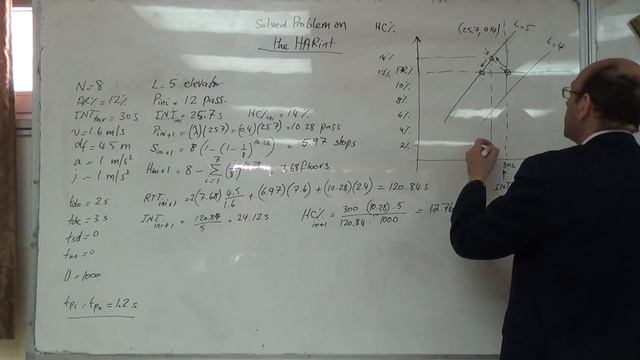 Solved Problem on
the HARint
N=8
AR%=12%
INT_tar=30s
v=1.6 m/s
df=4.5 m
a=1 m/s²
j=1 m/s³
t_do=2s
t_dc=3s
t_sd=0
t_ao=0
U=1000
t_pi=t_po=1.2s
L=5 elevator
P_ini=12 pass.
INT_ini=25.7s HC_ini%=14%
P_ini+1=(λ)(25.7)=(0.4)(25.7)=10.28 pass
S_ini+1=8(1-(1-1/8)^10.28)=5.97 stops
H_ini+1=8-∑_{i=1}^{7}(i/8)^10.28=7.68 floors
RTT_ini+1=2(7.68)4.5/1.6+(6.97)(7.6)+(10.28)(2.4)=120.84s
INT_ini+1=120.84/5=24.12s
HC%_ini+1=300·(10.28)·5/120.84·1000=12.76
HC%
(25.7, 014)
L=5
L=4
14%
12% AR%
10%
8%
6%
4%
2%
30s
INT